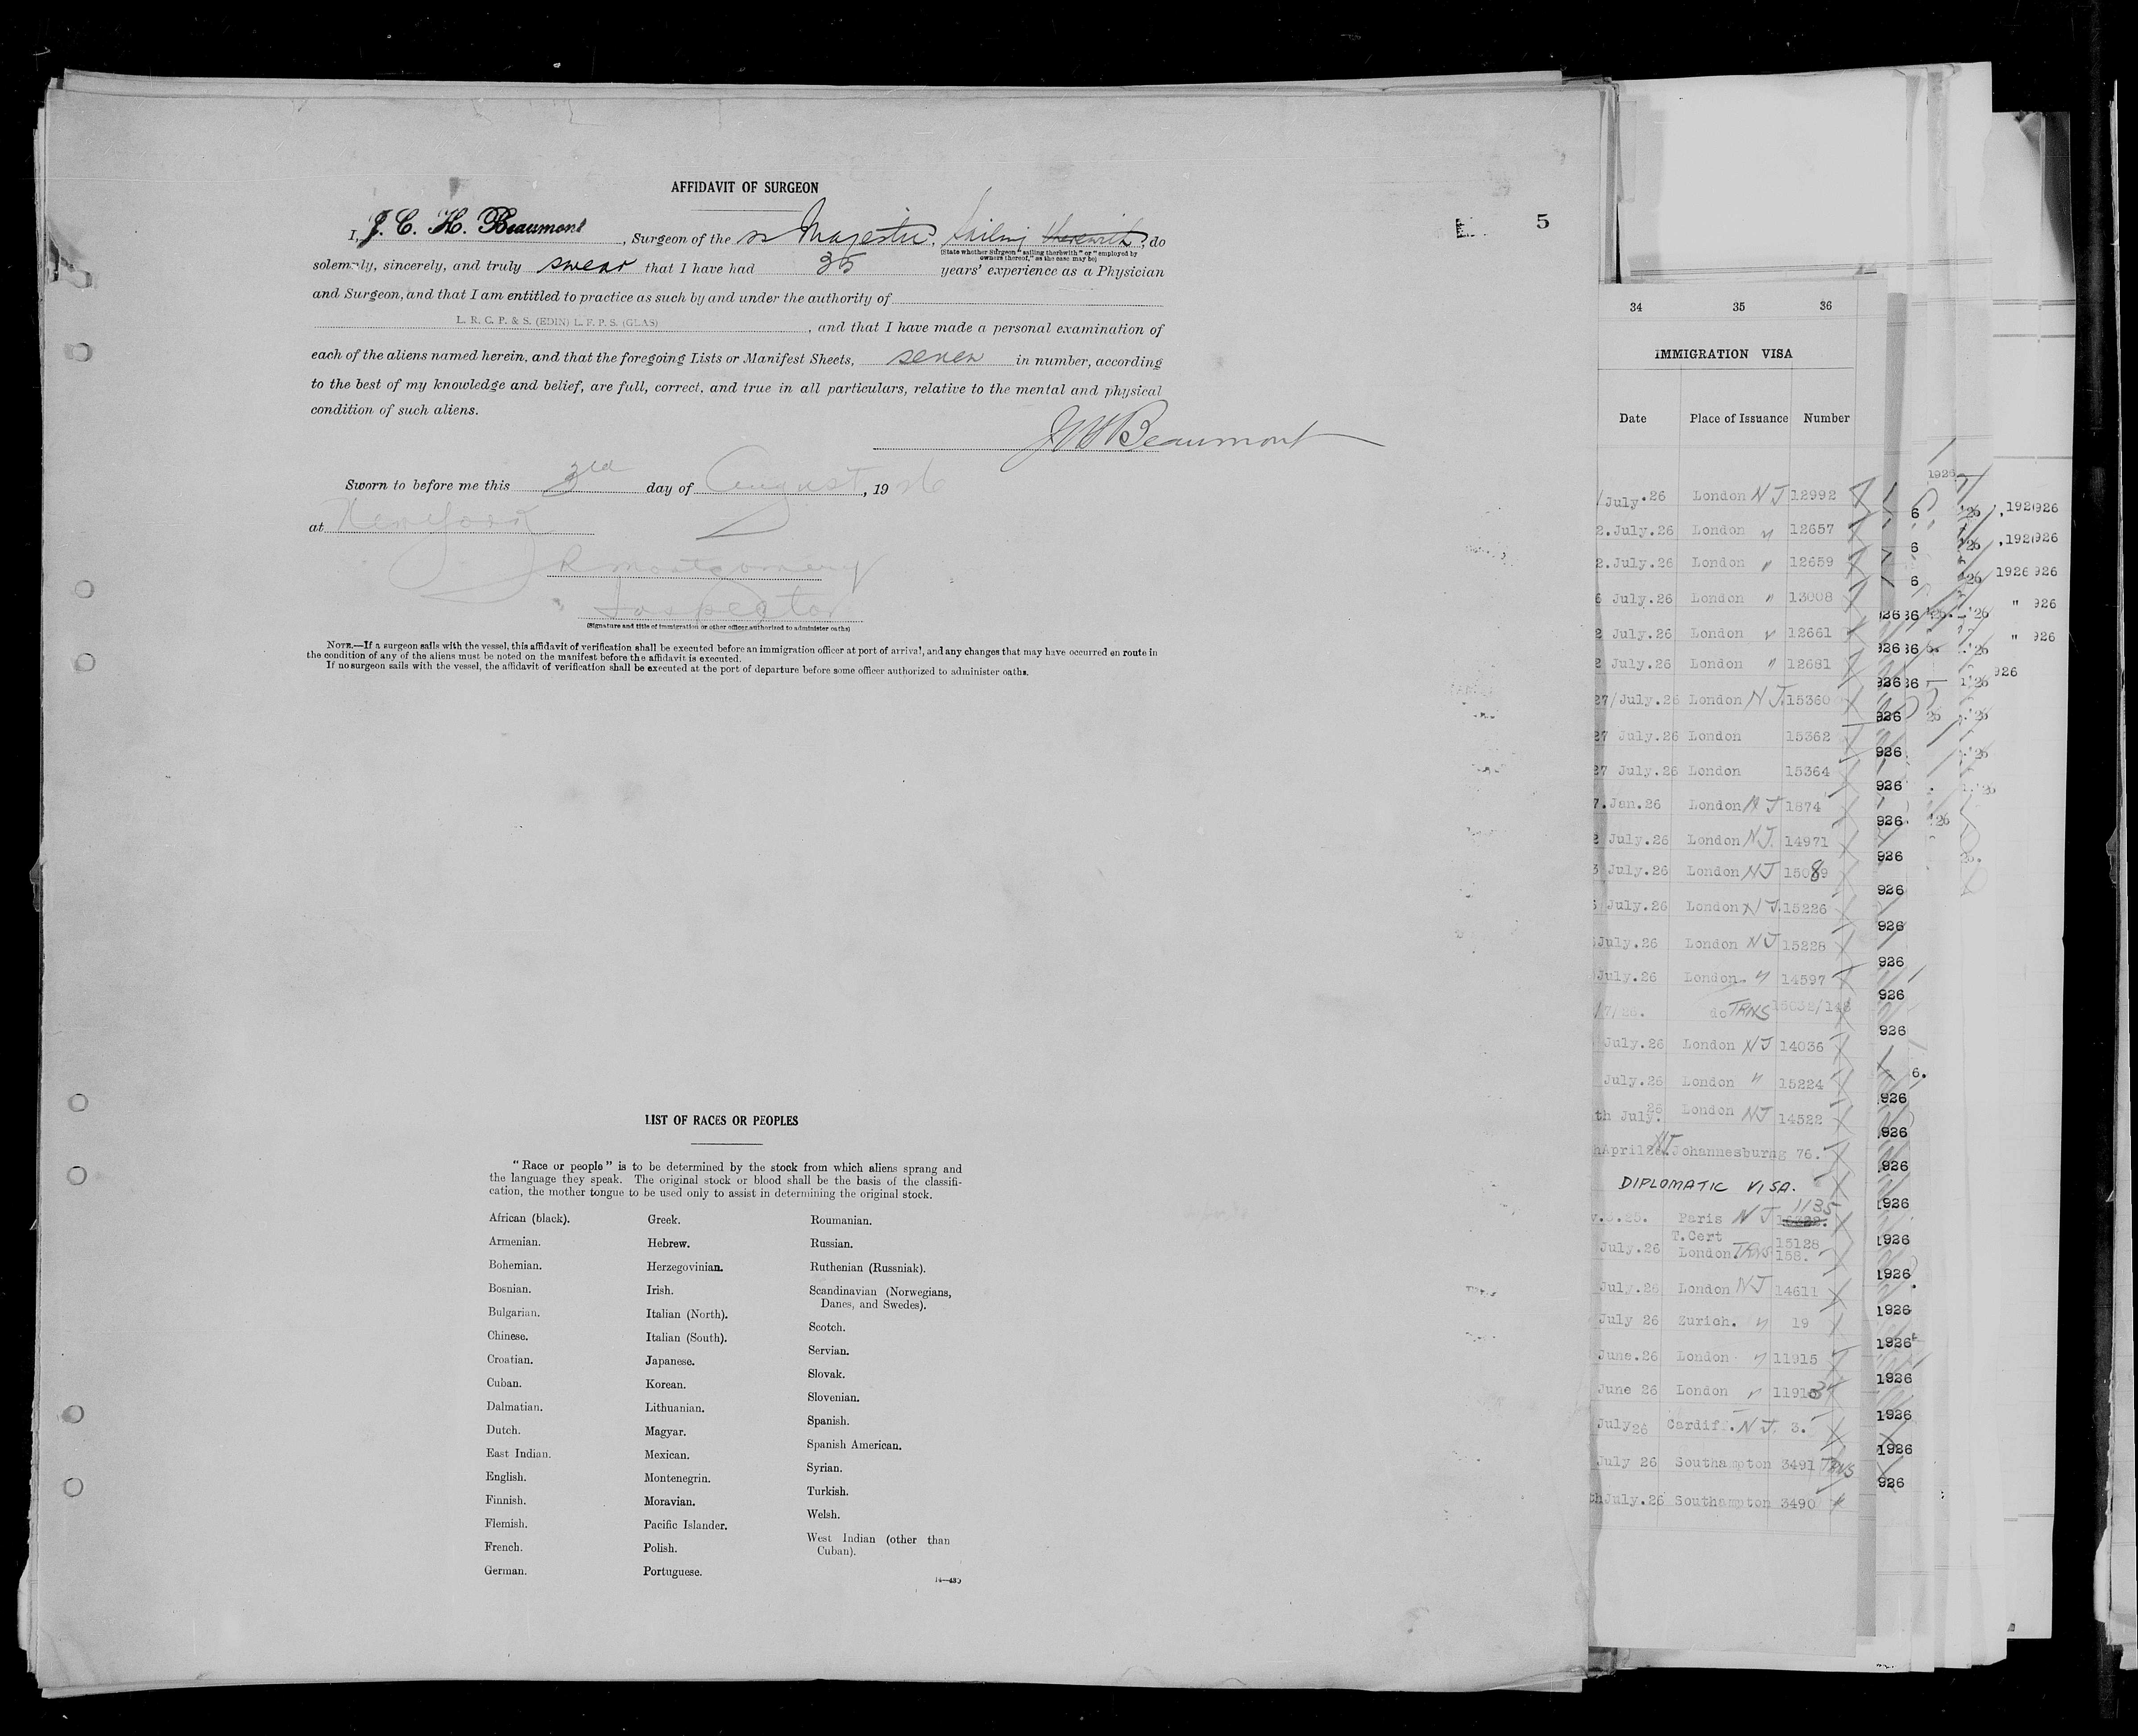 AFFIDAVIT OF SURGEON
5
I, J. C. H. Beaumont, Surgeon of the ss Majestic, sailing therewith, do
(State whether Surgeon "sailing therewith" or "employed by
owners thereof," as the case may be)
solemnly, sincerely, and truly swear that I have had 35 years' experience as a Physician
and Surgeon, and that I am entitled to practice as such by and under the authority of
L. R. C. P. & S. (EDIN) L. F. P. S. (GLAS), and that I have made a personal examination of
each of the aliens named herein, and that the foregoing Lists or Manifest Sheets, seven in number, according
to the best of my knowledge and belief, are full, correct, and true in all particulars, relative to the mental and physical
condition of such aliens.
J C H Beaumont
Sworn to before me this 3rd day of August, 1926
at New York
J R Montgomery
Inspector
(Signature and title of immigration or other officer authorized to administer oaths)
NOTE.—If a surgeon sails with the vessel, this affidavit of verification shall be executed before an immigration officer at port of arrival, and any changes that may have occurred en route in
the condition of any of the aliens must be noted on the manifest before the affidavit is executed.
If no surgeon sails with the vessel, the affidavit of verification shall be executed at the port of departure before some officer authorized to administer oaths.
LIST OF RACES OR PEOPLES
"Race or people" is to be determined by the stock from which aliens sprang and
the language they speak. The original stock or blood shall be the basis of the classifi-
cation, the mother tongue to be used only to assist in determining the original stock.
African (black).
Armenian.
Bohemian.
Bosnian.
Bulgarian.
Chinese.
Croatian.
Cuban.
Dalmatian.
Dutch.
East Indian.
English.
Finnish.
Flemish.
French.
German.
Greek.
Hebrew.
Herzegovinian.
Irish.
Italian (North).
Italian (South).
Japanese.
Korean.
Lithuanian.
Magyar.
Mexican.
Montenegrin.
Moravian.
Pacific Islander.
Polish.
Portuguese.
Roumanian.
Russian.
Ruthenian (Russniak).
Scandinavian (Norwegians,
Danes, and Swedes).
Scotch.
Servian.
Slovak.
Slovenian.
Spanish.
Spanish American.
Syrian.
Turkish.
Welsh.
West Indian (other than
Cuban).
14—430
34 35 36
IMMIGRATION VISA
Date Place of Issuance Number
July.26 London NJ 12992
2.July.26 London " 12657
2.July.26 London " 12659
6 July.26 London " 13008
2 July.26 London " 12661
2 July.26 London " 12681
27/July.26 London NJ. 15360
27 July.26 London 15362
27 July.26 London 15364
7.Jan.26 London NJ 1874
2 July.26 London NJ. 14971
3 July.26 London NJ 15089
July.26 London NJ. 15226
July.26 London NJ 15228
July.26 London " 14597
/7/26. do TRNS 15032/148
July.26 London NJ 14036
July.26 London " 15224
th July.26 London NJ 14522
April 26. NJ. Johannesburg 76.
DIPLOMATIC VISA.
v.3.25. Paris NJ 1135
July.26 T.Cert London TRNS 15128 158.
July.26 London NJ 14611
July 26 Zurich. " 19
June.26 London " 11915
June 26 London " 11913
July 26 Cardiff. NJ. 3.
July 26 Southampton 3491 TRNS
th July.26 Southampton 3490 "